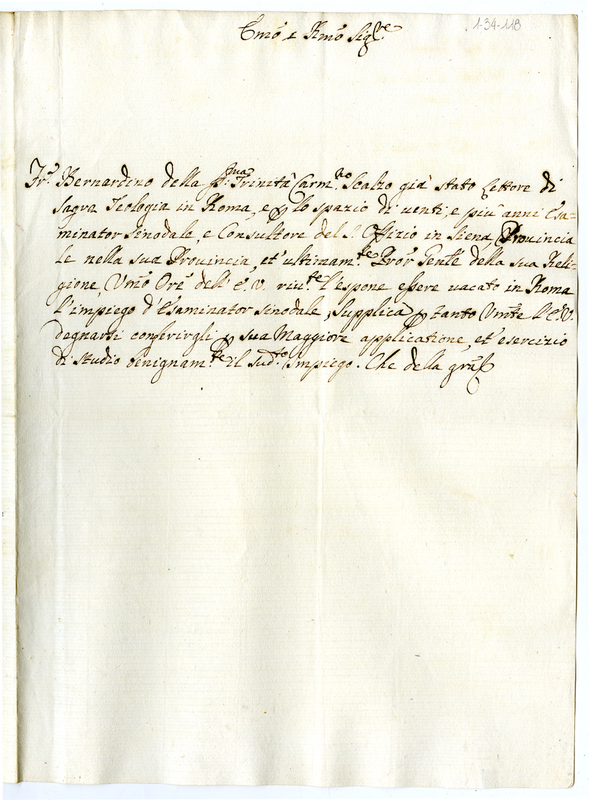 1-34-118
Em̃o e Rm̃o Sig.re
Fr. Bernardino della SS.ma Trinità Carm.no Scalzo già stato Lettore di
Sagra Teologia in Roma, e p lo spazio di venti, e più anni Esa-
minator Sinodale, e Consultore del S. Offizio in Siena, Provincia
le nella sua Provincia, et' ultimam.te Pror̃ Gen̄le della sua Reli-
gione, Um̃o Or̃e dell' E. V. riv.te l'espone essere vacato in Roma
l'impiego d'Esaminator Sinodale, Supplica p tanto Um̃te l'E. V.
degnarsi conferirgli p sua Maggiore applicatione, et' esercizio
di Studio benignam.te il sud.to Impiego. Che della gra͂